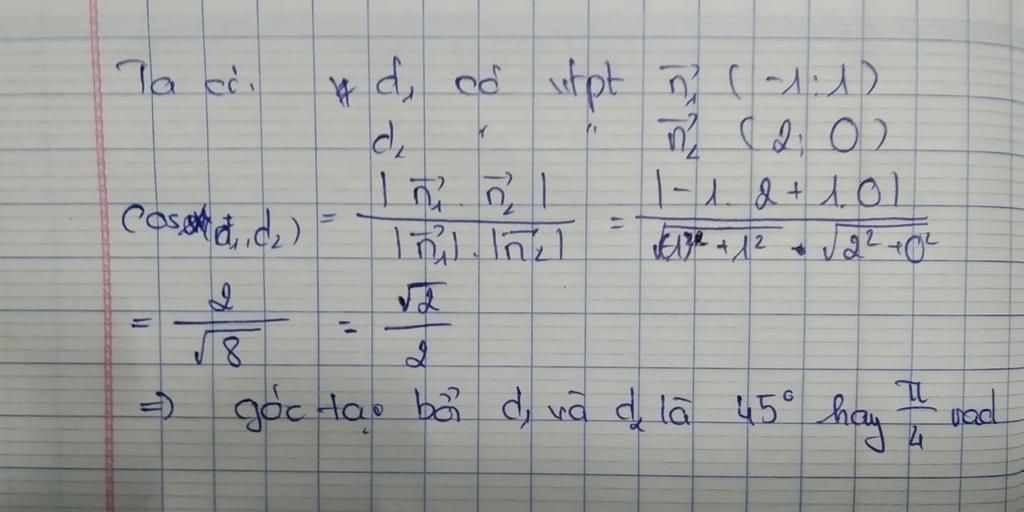 Ta có: * d₁ có vtpt n₁⃗ (-1; 1)
d₂ " " n₂⃗ (2; 0)
cos(d₁, d₂) = |n₁⃗ . n₂⃗| / |n₁⃗| . |n₂⃗| = |-1. 2 + 1. 0| / √((-1)² + 1²) . √(2² + 0²)
= 2/√8 = √2/2
=> góc tạo bởi d₁ và d₂ là 45° hay π/4 rad